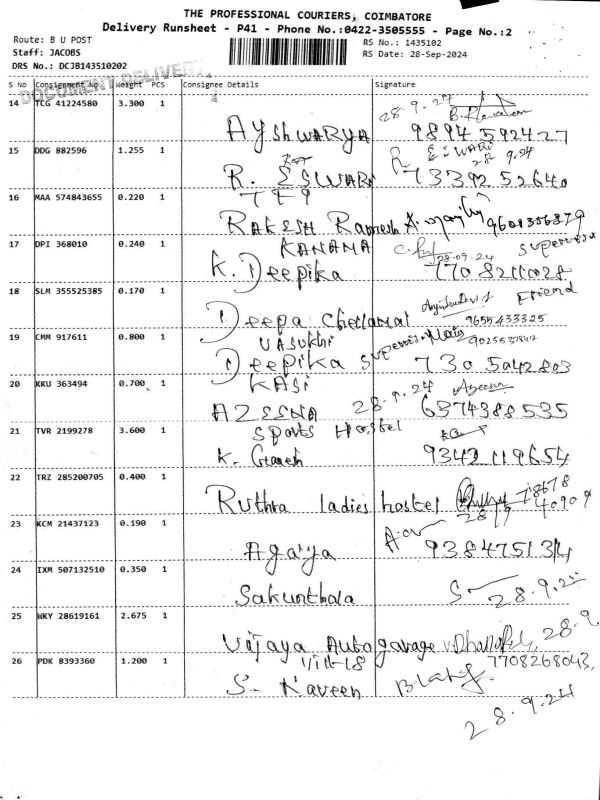 THE PROFESSIONAL COURIERS, COIMBATORE
Delivery Runsheet - P41 - Phone No.:0422-3505555 - Page No.:2
Route: B U POST
RS No.: 1435102
Staff: JACOBS
RS Date: 28-Sep-2024
DRS No.: DCJB143510202
DOCUMENT DELIVERY
S No Consignment No Weight PCS Consignee Details Signature
14 TCG 41224580 3.300 1
28-9-24
AyshWARYA 9894592427
15 DDG 882596 1.255 1
R. ESWARI
28 9.24
R. ESWARI 7339252640
16 MAA 574843655 0.220 1
RAKESH Ramesh 9601356879
17 DPI 368010 0.240 1
KANAMA 28-09-24 Supervisor
K. Deepika 7708211028
18 SLM 355525385 0.170 1
Friend
Deepa Chellamal 9655433325
19 CMM 917611 0.800 1
VASUKHI Supervisor 9025637847
Deepika 7305042803
20 KKU 363494 0.700 1
KASI 28-9-24
AZEENA 6374388535
21 TVR 2199278 3.600 1
Sports Hostel
K. Ganesh 9342119654
22 TRZ 285200705 0.400 1
78678
Ruthra ladies hostel 28/9 40909
23 KCM 21437123 0.190 1
Agalya 9384751314
24 IXM 507132510 0.350 1
Sakunthala S 28.9.24
25 WKY 28619161 2.675 1
Vijaya Auto garage 28-9
26 PDK 8393360 1.200 1
7708268043
S- Naveen
28.9.24